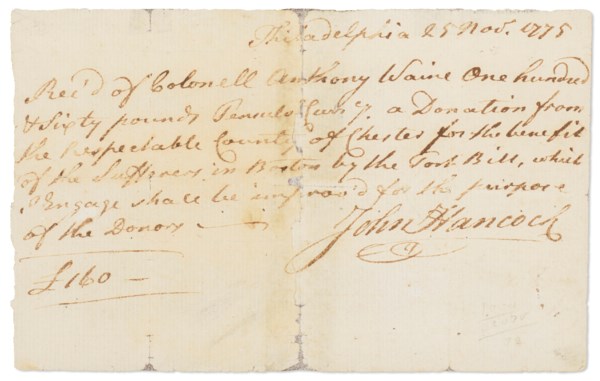 Philadelphia 25 Nov. 1775
Rec'd of Colonell Anthony Waine One hundred
& Sixty pounds Pensylv Curr'y a Donation from
the Respectable County of Chester for the benefit
of the Sufferers in Boston by the Port Bill, which
I Engage shall be improv'd for the purpose
of the Donors
John Hancock
£160 —